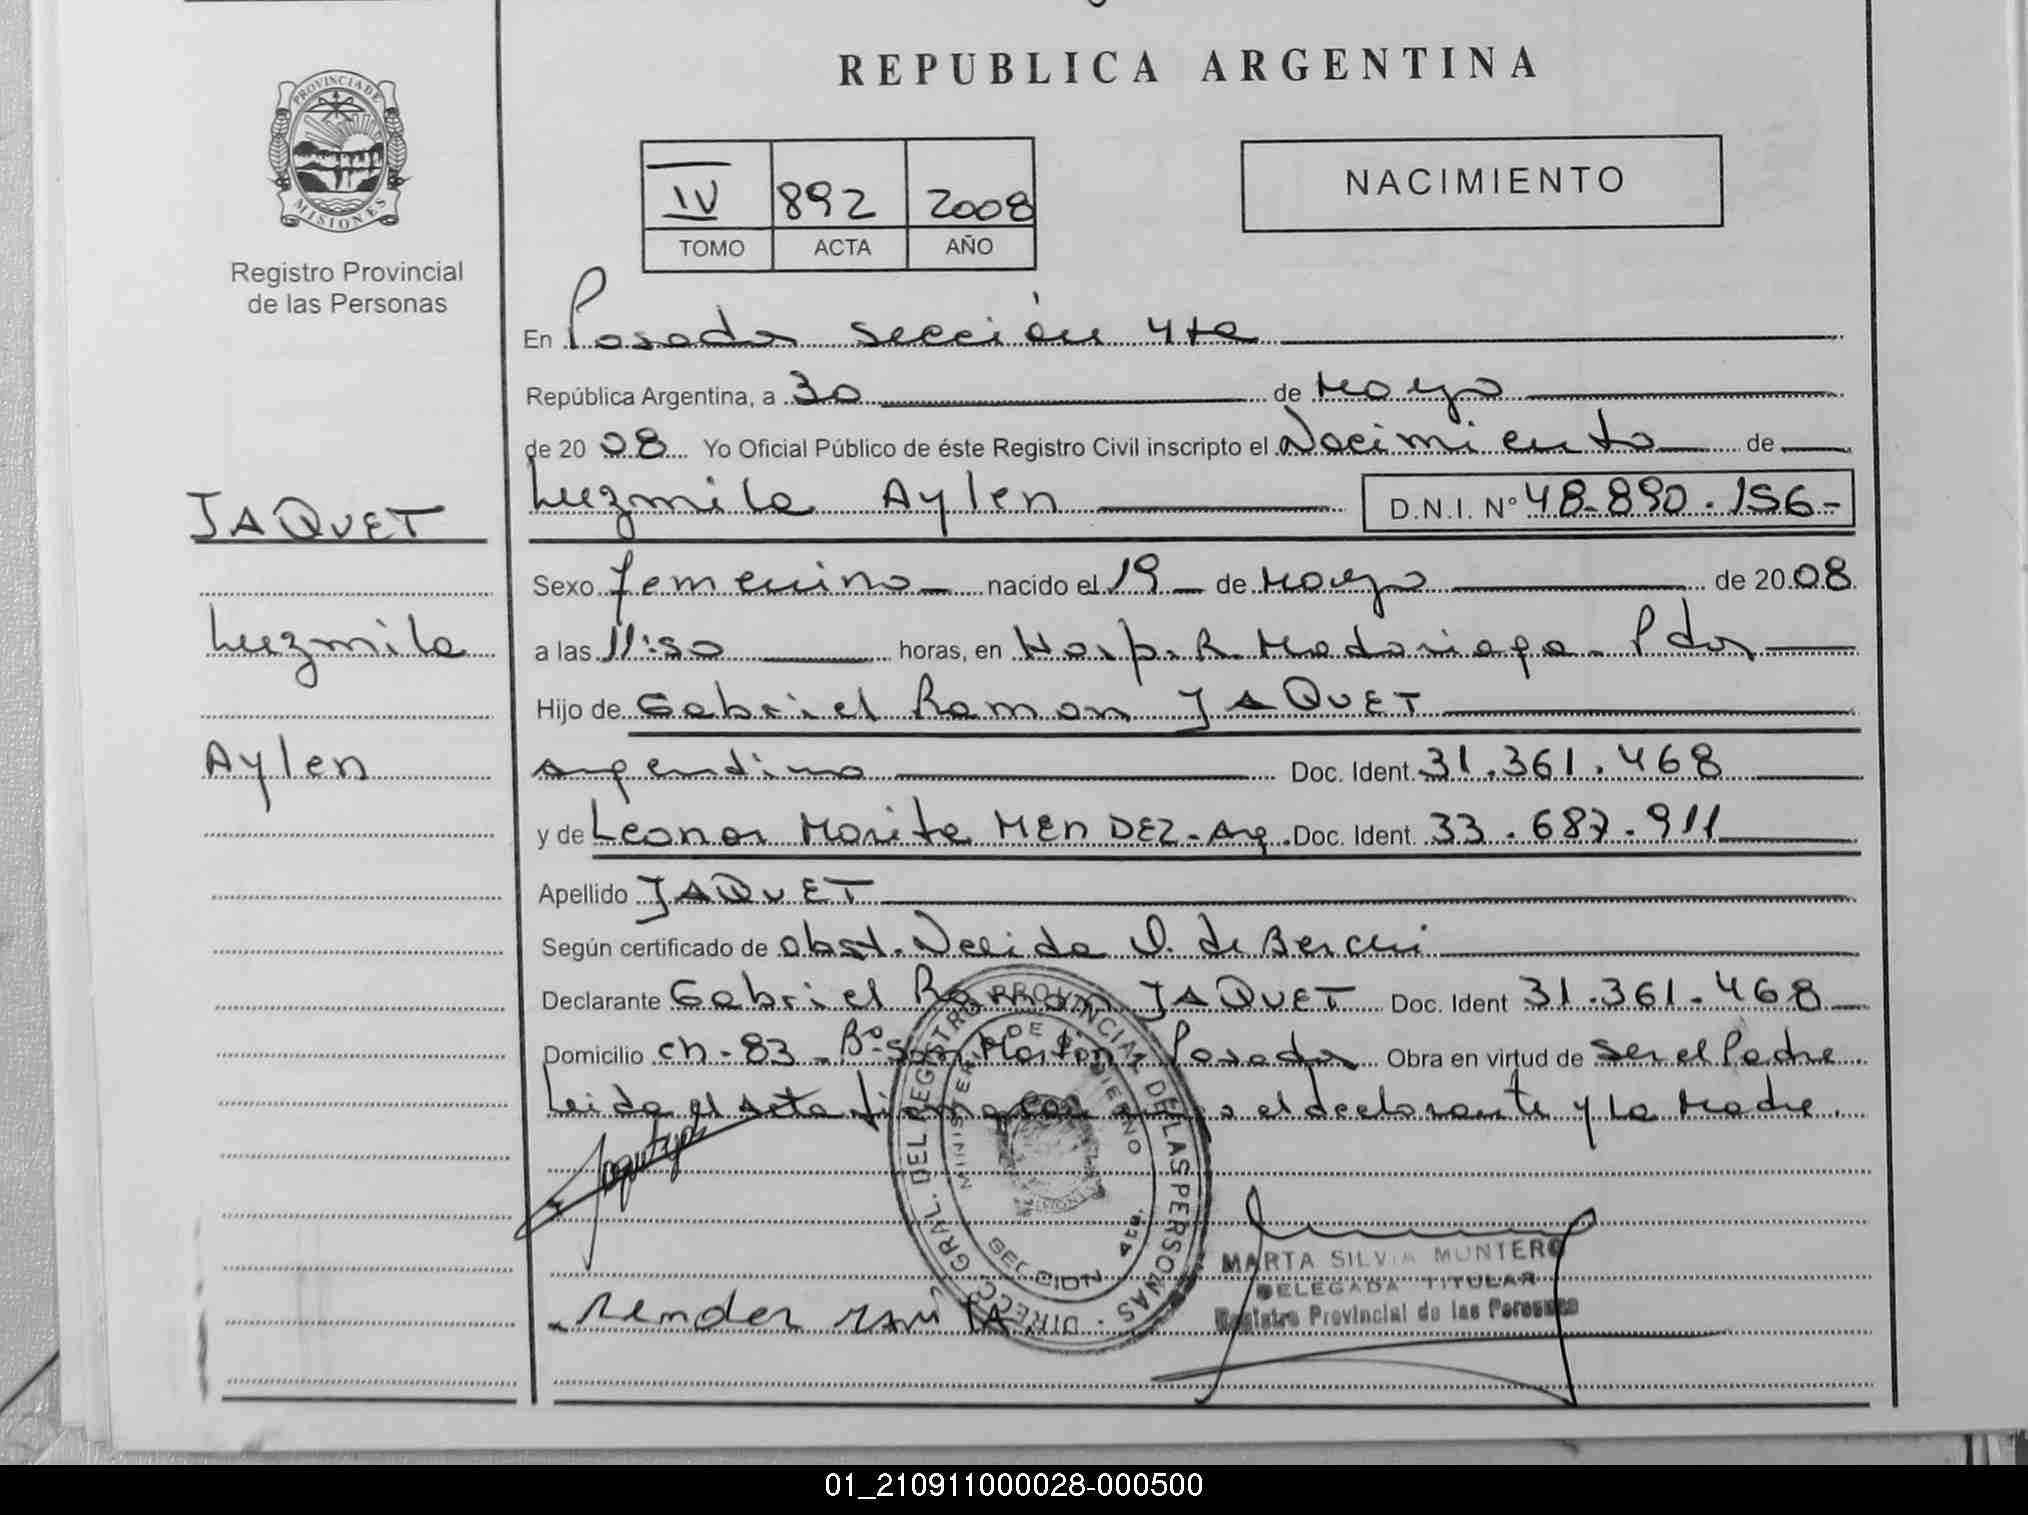 REPUBLICA ARGENTINA
PROVINCIA DE MISIONES
Registro Provincial
de las Personas
IV 892 2008
TOMO ACTA AÑO
NACIMIENTO
En Posadas sección 4ta
República Argentina, a 30 de Mayo
de 20 08 Yo Oficial Público de éste Registro Civil inscripto el Nacimiento de
JAQUET
Luzmila Aylen D.N.I. N° 48.890.156-
Sexo femenino nacido el 19 de Mayo de 20 08
Luzmila
a las 11:50 horas, en Hosp. R. Madariaga - Pdas
Hijo de Gabriel Ramon JAQUET
Aylen
argentino Doc. Ident. 31.361.468
y de Leonor Marite MENDEZ - Arg. Doc. Ident. 33.687.911
Apellido JAQUET
Según certificado de obst. D. de
Declarante Gabriel Ramon JAQUET Doc. Ident 31.361.468
Domicilio ch-83-B° San Martin Posadas Obra en virtud de ser el Padre
Leida el acta el declarante y la Madre.
DIRECC. GRAL. DEL REGISTRO PROVINCIAL DE LAS PERSONAS
MINISTERIO DE GOBIERNO
SECCION 4ta.
MARTA SILVIA MONTERO
DELEGADA TITULAR
Registro Provincial de las Personas
01_210911000028-000500